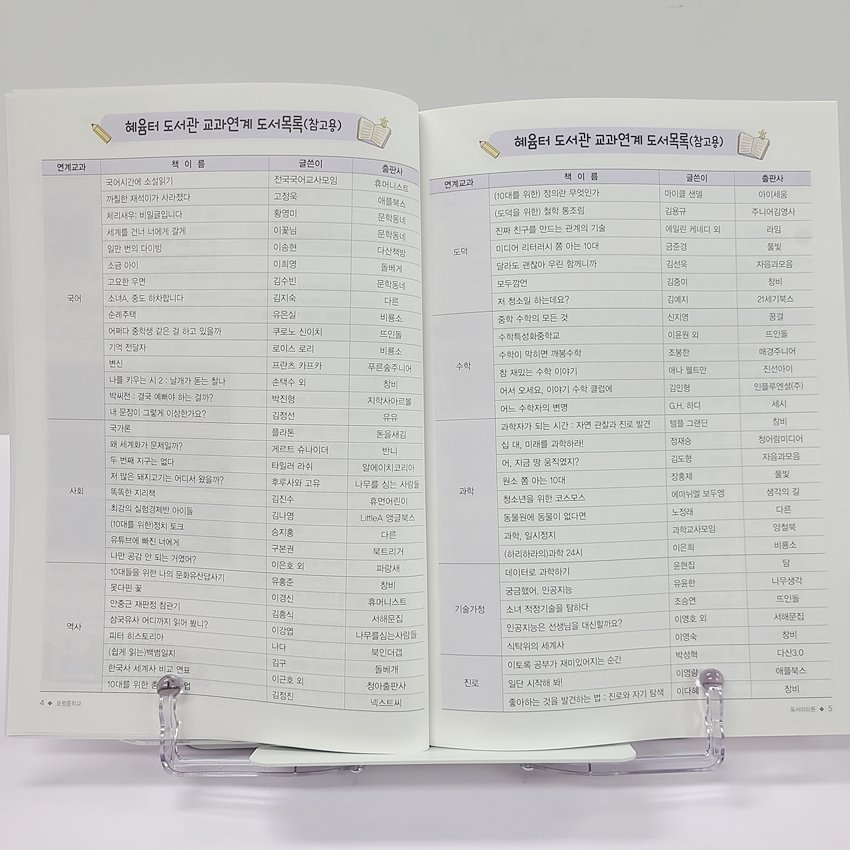 혜윰터 도서관 교과연계 도서목록(참고용)
연계교과 책 이 름 글쓴이 출판사
국어
국어시간에 소설읽기 전국국어교사모임 휴머니스트
까칠한 재석이가 사라졌다 고정욱 애플북스
체리새우: 비밀글입니다 황영미 문학동네
세계를 건너 너에게 갈게 이꽃님 문학동네
일만 번의 다이빙 이송현 다산책방
소금 아이 이희영 돌베개
고요한 우연 김수빈 문학동네
소녀A, 중도 하차합니다 김지숙 다른
순례주택 유은실 비룡소
어쩌다 중학생 같은 걸 하고 있을까 쿠로노 신이치 뜨인돌
기억 전달자 로이스 로리 비룡소
변신 프란츠 카프카 푸른숲주니어
나를 키우는 시 2 : 날개가 돋는 찰나 손택수 외 창비
박씨전 : 결국 예뻐야 하는 걸까? 박진형 지학사아르볼
내 문장이 그렇게 이상한가요? 김정선 유유
사회
국가론 플라톤 돋을새김
왜 세계화가 문제일까? 게르트 슈나이더 반니
두 번째 지구는 없다 타일러 라쉬 알에이치코리아
저 많은 돼지고기는 어디서 왔을까? 후루사와 고유 나무를 심는 사람들
똑똑한 지리책 김진수 휴먼어린이
최강의 실험경제반 아이들 김나영 LittleA 앵글북스
(10대를 위한)정치 토크 승지홍 다른
유튜브에 빠진 너에게 구본권 북트리거
나만 공감 안 되는 거였어? 이은호 외 파랑새
역사
10대들을 위한 나의 문화유산답사기 유홍준 창비
못다핀 꽃 이경신 휴머니스트
안중근 재판정 참관기 김흥식 서해문집
삼국유사 어디까지 읽어 봤니? 이강엽 나무를심는사람들
피터 히스토리아 나다 북인더갭
(쉽게 읽는)백범일지 김구 돌베개
한국사 세계사 비교 연표 이근호 외 청아출판사
10대를 위한 김정진 넥스트씨
4 ◆ 호평중학교
혜윰터 도서관 교과연계 도서목록(참고용)
연계교과 책 이 름 글쓴이 출판사
도덕
(10대를 위한) 정의란 무엇인가 마이클 샌델 아이세움
(도덕을 위한) 철학 통조림 김용규 주니어김영사
진짜 친구를 만드는 관계의 기술 에일린 케네디 외 라임
미디어 리터러시 쫌 아는 10대 금준경 풀빛
달라도 괜찮아 우린 함께니까 김선욱 자음과모음
모두깜언 김중미 창비
저 청소일 하는데요? 김예지 21세기북스
수학
중학 수학의 모든 것 신지영 꿈결
수학특성화중학교 이윤원 외 뜨인돌
수학이 막히면 깨봉수학 조봉한 매경주니어
참 재밌는 수학 이야기 애나 웰트만 진선아이
어서 오세요, 이야기 수학 클럽에 김민형 인플루엔셜(주)
어느 수학자의 변명 G.H. 하디 세시
과학
과학자가 되는 시간 : 자연 관찰과 진로 발견 템플 그랜딘 창비
십 대, 미래를 과학하라! 정재승 청어람미디어
어, 지금 땅 움직였지? 김도형 자음과모음
원소 쫌 아는 10대 장홍제 풀빛
청소년을 위한 코스모스 에마뉘엘 보두엥 생각의 길
동물원에 동물이 없다면 노정래 다른
과학, 일시정지 과학교사모임 양철북
(하리하라의)과학 24시 이은희 비룡소
기술가정
데이터로 과학하기 윤현집 탐
궁금했어, 인공지능 유윤한 나무생각
소녀 적정기술을 탐하다 조승연 뜨인돌
인공지능은 선생님을 대신할까요? 이영호 외 서해문집
식탁위의 세계사 이영숙 창비
진로
이토록 공부가 재미있어지는 순간 박성혁 다산3.0
일단 시작해 봐! 이영랄 애플북스
좋아하는 것을 발견하는 법 : 진로와 자기 탐색 이다혜 창비
독서마라톤 ◆ 5